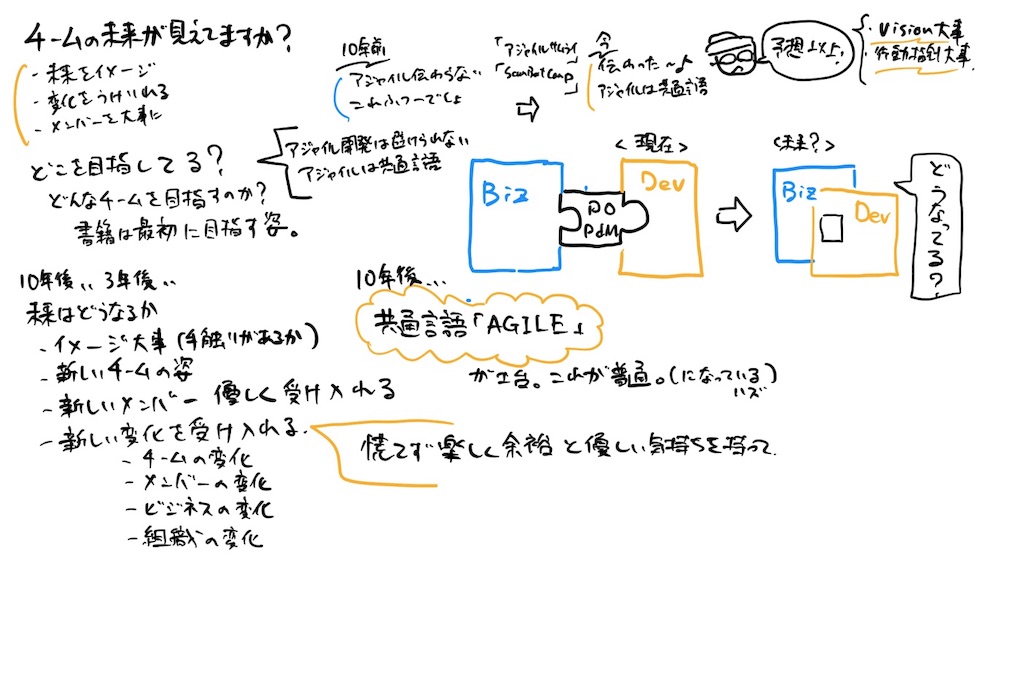 チームの未来が見えてますか?
・未来をイメージ
・変化をうけいれる
・メンバーを大事に
どこを目指してる?
どんなチームを目指すのか?
書籍は最初に目指す姿。
アジャイル開発は避けられない
アジャイルは共通言語
10年前
アジャイル伝わらない
これふつーでしょ
「アジャイルサムライ」
「ScrumBootCamp」
今
伝わった〜♪
アジャイルは共通言語
予想以上!
Vision大事
行動指針大事
<現在>
Biz
PO
PdM
Dev
<未来?>
Biz
Dev
どうなってる?
10年後‥3年後‥
未来はどうなるか
・イメージ大事(手触りがあるか)
・新しいチームの姿
・新しいメンバー 優しく受け入れる
・新しい変化を受け入れる.
- チームの変化
- メンバーの変化
- ビジネスの変化
- 組織の変化
10年後...
共通言語「AGILE」
が土台。これが普通。(になっている)
ハズ
慌てず楽しく余裕と優しい気持ちを持って.